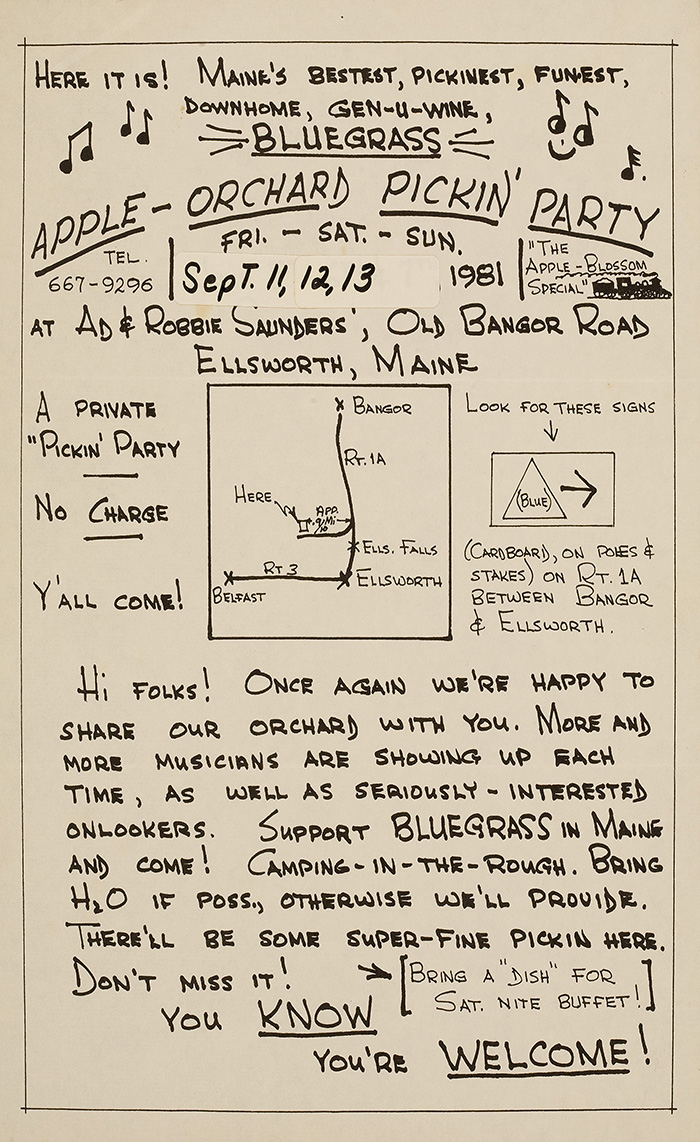 HERE IT IS! MAINE'S BESTEST, PICKINEST, FUNEST,
DOWNHOME, GEN-U-WINE,
BLUEGRASS
APPLE-ORCHARD PICKIN' PARTY
FRI. - SAT. - SUN.
TEL.
667-9296
SEPT. 11, 12, 13 1981
"THE
APPLE-BLOSSOM
SPECIAL"
AT AD & ROBBIE SAUNDERS', OLD BANGOR ROAD
ELLSWORTH, MAINE
A PRIVATE
"PICKIN' PARTY
NO CHARGE
Y'ALL COME!
BANGOR
RT. 1A
HERE
APP.
9/10 Mi
ELLS. FALLS
RT 3
ELLSWORTH
BELFAST
LOOK FOR THESE SIGNS
(BLUE)
(CARDBOARD), ON POLES &
STAKES) ON RT. 1A
BETWEEN BANGOR
& ELLSWORTH.
HI FOLKS! ONCE AGAIN WE'RE HAPPY TO
SHARE OUR ORCHARD WITH YOU. MORE AND
MORE MUSICIANS ARE SHOWING UP EACH
TIME, AS WELL AS SERIOUSLY-INTERESTED
ONLOOKERS. SUPPORT BLUEGRASS IN MAINE
AND COME! CAMPING-IN-THE-ROUGH. BRING
H2O IF POSS., OTHERWISE WE'LL PROVIDE.
THERE'LL BE SOME SUPER-FINE PICKIN HERE.
DON'T MISS IT!
[BRING A "DISH" FOR
SAT. NITE BUFFET!]
YOU KNOW
YOU'RE WELCOME!